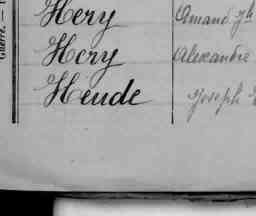 Guerre. —
Hery Amand Jh
Hery Alexandre
Heude Joseph